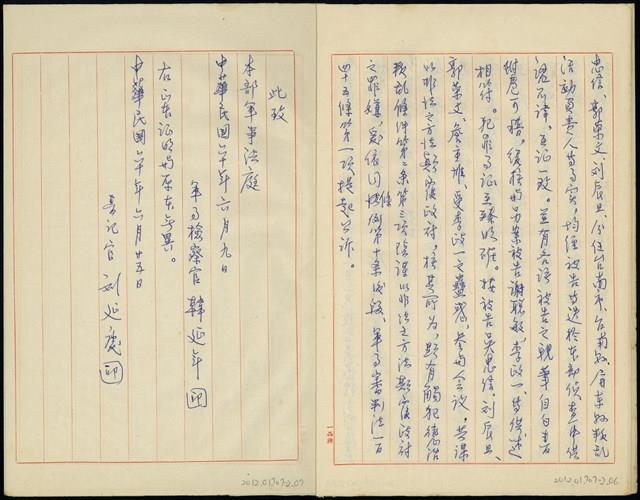 忠信、郭荣文、刘辰旦、分任台南市、台南县、屏东县叛乱
活动负责人等事实，均经被告等迭於本部侦查中供
认不讳，互证一致。并有各该被告之亲笔自白书
附卷可稽，复核与另案被告谢聪敏、李政一、等供述
相符。犯罪事证至臻明确。按被告吴忠信、刘辰旦、
郭荣文、詹重雄、受李政一之蛊惑，参与会议，共谋
以非法之方法颠覆政府，核其所为，显有触犯惩治
叛乱条例第二条第三项阴谋以非法之方法颠覆政府
之罪嫌，爰依同条例第十条後段、军事审判法一百
四十五条第一项提起公诉。
此致
本部军事法庭
中華民國六十年六月九日
军事检察官 韩延年 印
右正本证明与原本无异。
中華民國六十年六月廿五日
书记官 刘延庆 印
一品牌
2012.01.707-2_07
2012.01.707-2_06